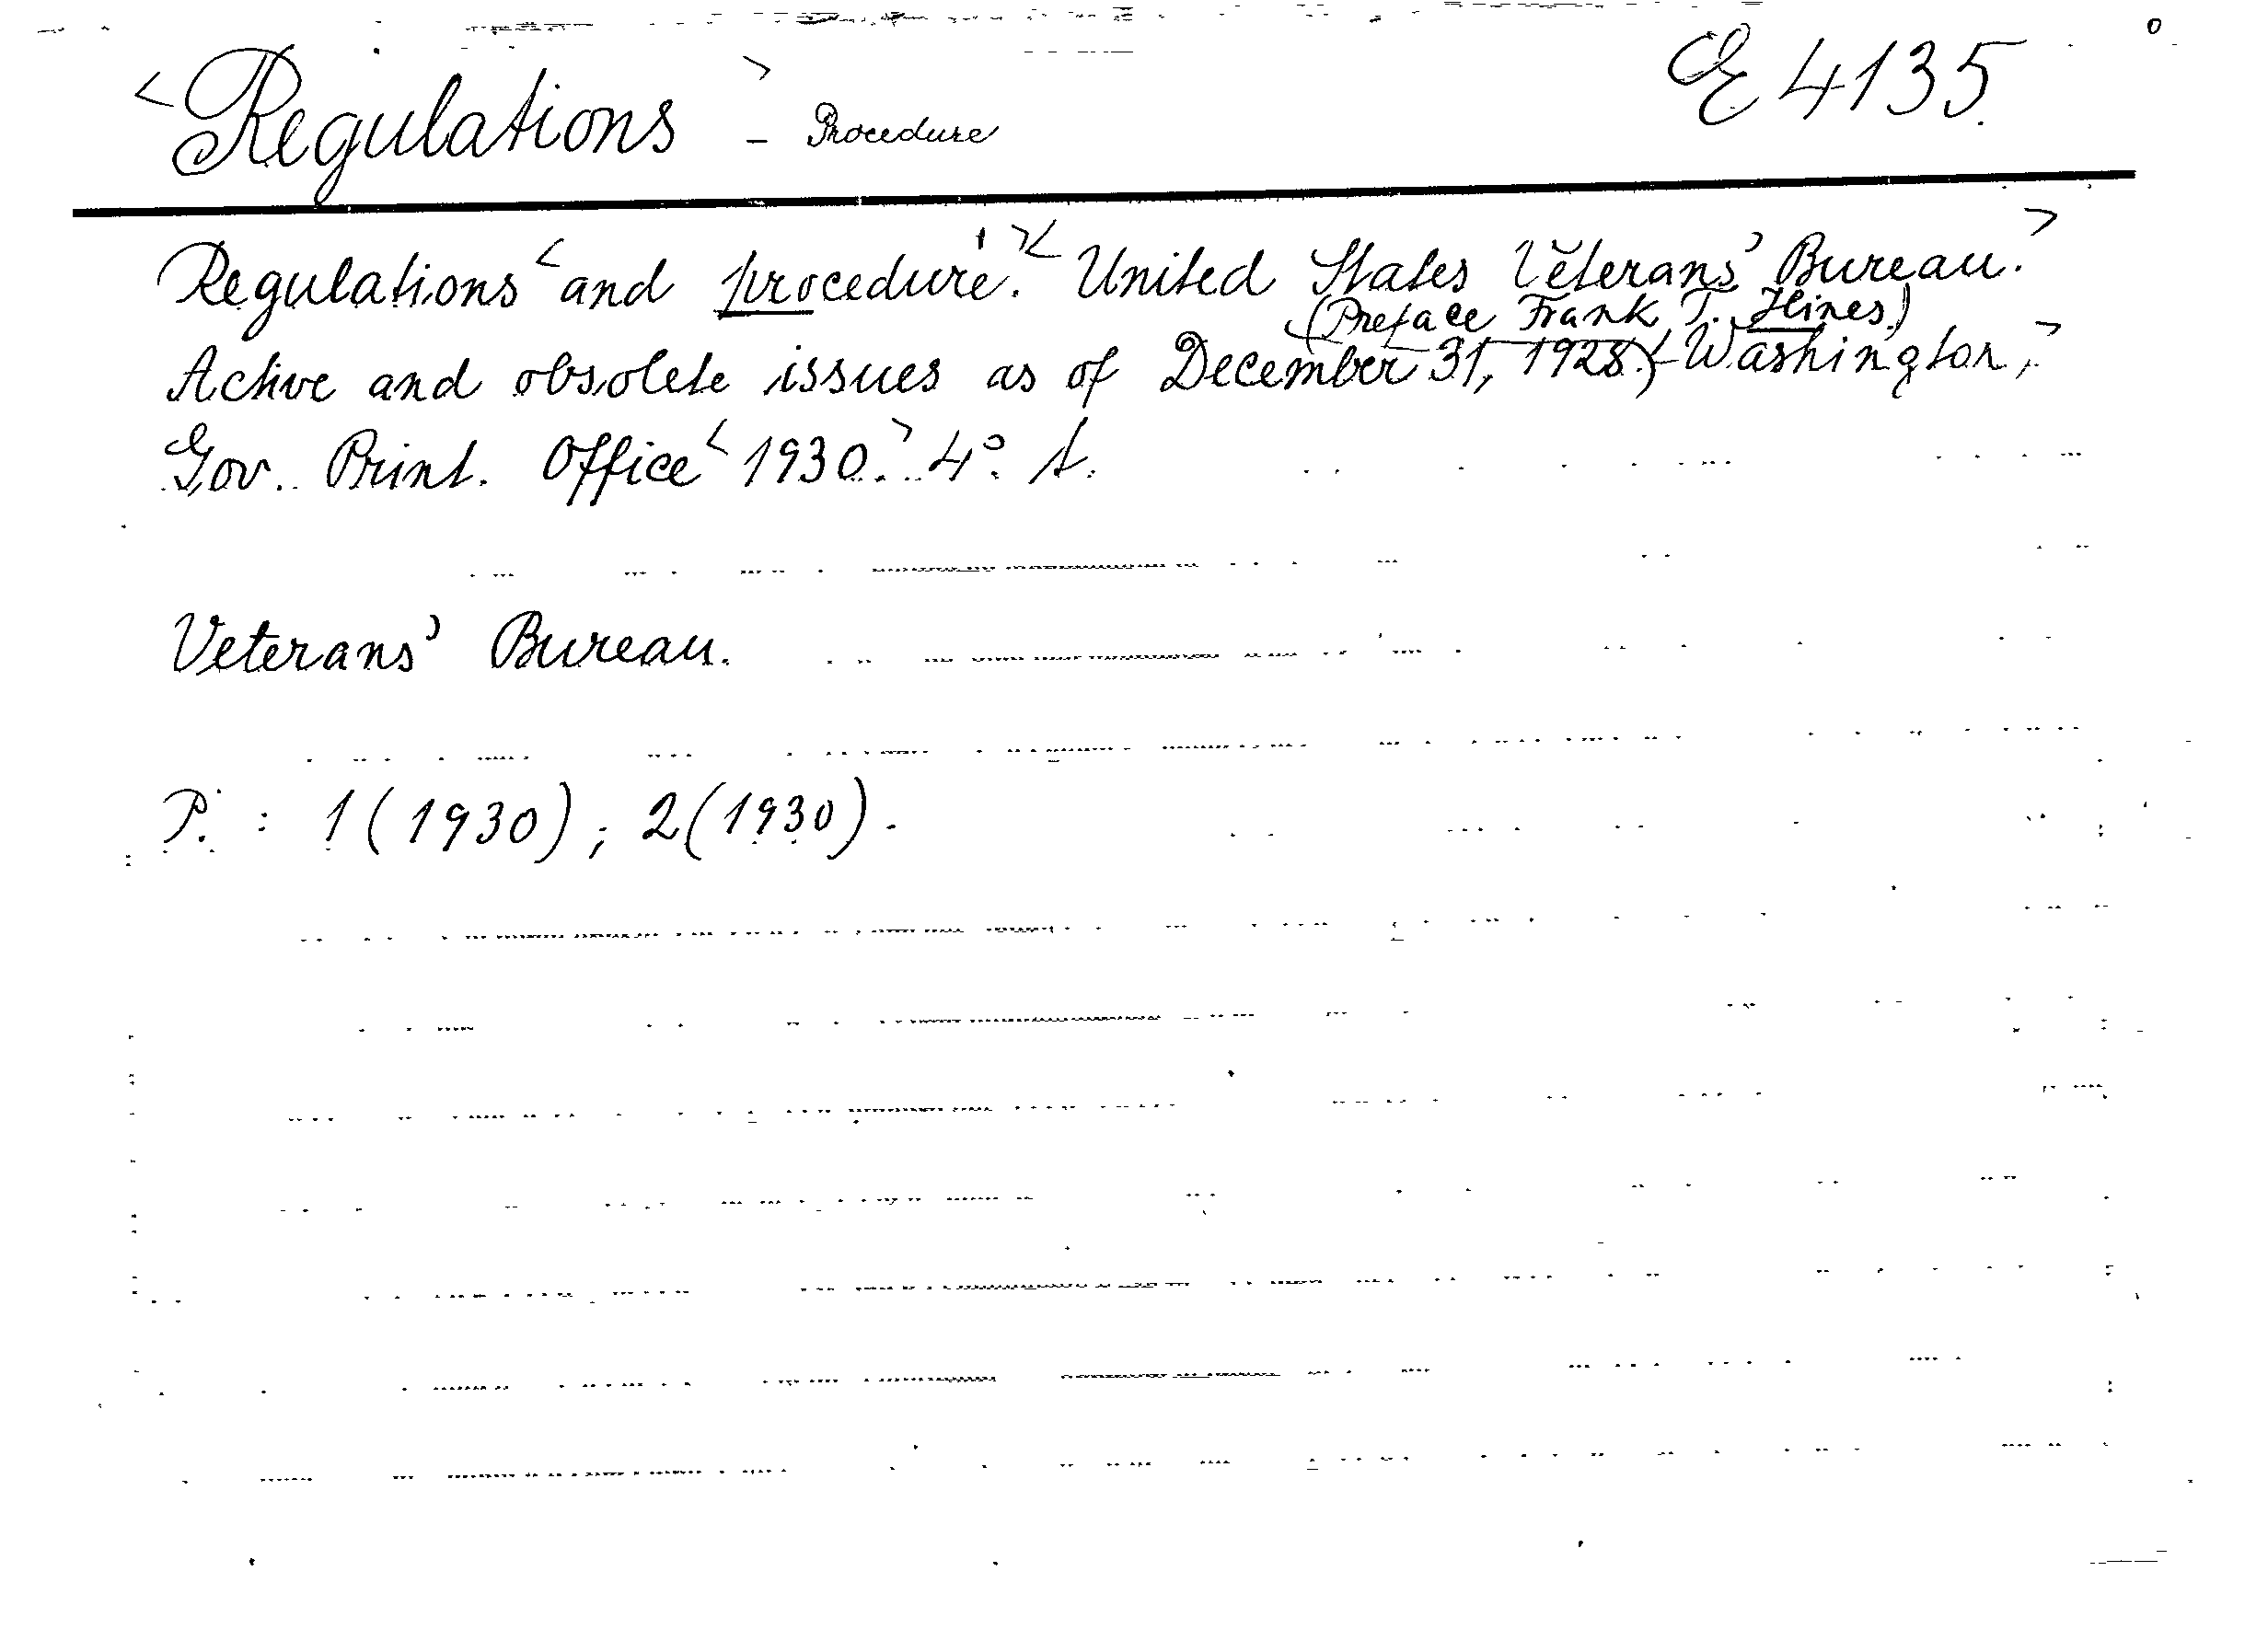 <Regulations> - Procedure E 4135.
Regulations <and procedure.'> <United States Veterans' Bureau.>
(Preface Frank T. Hines.)
Active and obsolete issues as of December 31, 1928.) <Washington,>
Gov. Print. Office <1930.> 4°.
Veterans' Bureau.
P. : 1 (1930) ; 2 (1930) .